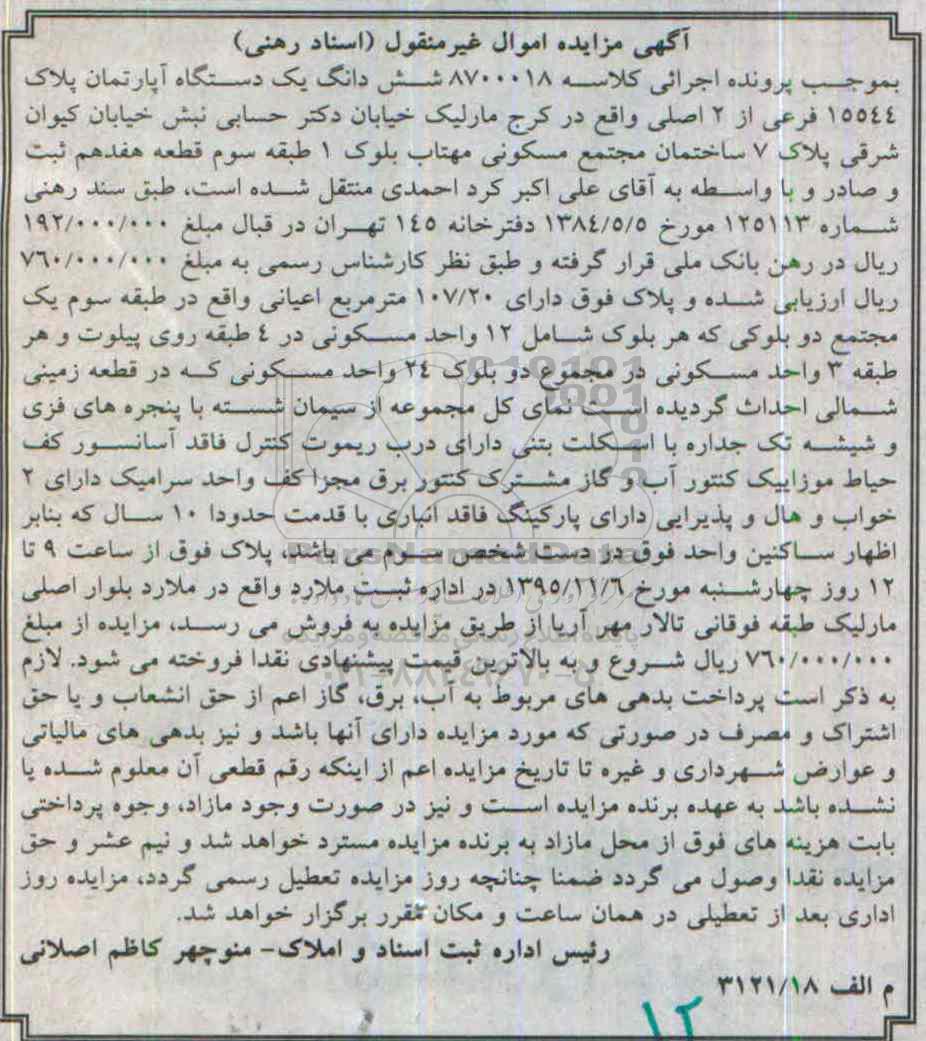 آگهی مزایده اموال غیرمنقول (اسناد رهنی)
بموجب پرونده اجرائی کلاسه ۸۷۰۰۰۱۸ شش دانگ یک دستگاه آپارتمان پلاک
۱۵۵٤٤ فرعی از ۲ اصلی واقع در کرج مارلیک خیابان دکتر حسابی نبش خیابان کیوان
شرقی پلاک ۷ ساختمان مجتمع مسکونی مهتاب بلوک ۱ طبقه سوم قطعه هفدهم ثبت
و صادر و با واسطه به آقای علی اکبر کرد احمدی منتقل شده است، طبق سند رهنی
شماره ۱۲۵۱۱۳ مورخ ۱۳۸٤/۵/۵ دفترخانه ۱٤۵ تهران در قبال مبلغ ۱۹۲/۰۰۰/۰۰۰
ریال در رهن بانک ملی قرار گرفته و طبق نظر کارشناس رسمی به مبلغ ۷٦۰/۰۰۰/۰۰۰
ریال ارزیابی شده و پلاک فوق دارای ۱۰۷/۲۰ مترمربع اعیانی واقع در طبقه سوم یک
مجتمع دو بلوکی که هر بلوک شامل ۱۲ واحد مسکونی در ٤ طبقه روی پیلوت و هر
طبقه ۳ واحد مسکونی در مجموع دو بلوک ۲٤ واحد مسکونی که در قطعه زمینی
شمالی احداث گردیده است نمای کل مجموعه از سیمان شسته با پنجره های فزی
و شیشه تک جداره با اسکلت بتنی دارای درب ریموت کنترل فاقد آسانسور کف
حیاط موزاییک کنتور آب و گاز مشترک کنتور برق مجزا کف واحد سرامیک دارای ۲
خواب و هال و پذیرایی دارای پارکینگ فاقد انباری با قدمت حدودا ۱۰ سال که بنابر
اظهار ساکنین واحد فوق در دست شخص سوم می باشد، پلاک فوق از ساعت ۹ تا
۱۲ روز چهارشنبه مورخ ۱۳۹۵/۱۱/٦ در اداره ثبت ملارد واقع در ملارد بلوار اصلی
مارلیک طبقه فوقانی تالار مهر آریا از طریق مزایده به فروش می رسد، مزایده از مبلغ
۷٦۰/۰۰۰/۰۰۰ ریال شروع و به بالاترین قیمت پیشنهادی نقدا فروخته می شود. لازم
به ذکر است پرداخت بدهی های مربوط به آب، برق، گاز اعم از حق انشعاب و یا حق
اشتراک و مصرف در صورتی که مورد مزایده دارای آنها باشد و نیز بدهی های مالیاتی
و عوارض شهرداری و غیره تا تاریخ مزایده اعم از اینکه رقم قطعی آن معلوم شده یا
نشده باشد به عهده برنده مزایده است و نیز در صورت وجود مازاد، وجوه پرداختی
بابت هزینه های فوق از محل مازاد به برنده مزایده مسترد خواهد شد و نیم عشر و حق
مزایده نقدا وصول می گردد ضمنا چنانچه روز مزایده تعطیل رسمی گردد، مزایده روز
اداری بعد از تعطیلی در همان ساعت و مکان مقرر برگزار خواهد شد.
رئیس اداره ثبت اسناد و املاک- منوچهر کاظم اصلانی
م الف ۳۱۲۱/۱۸
۱۲
ParsNamadData